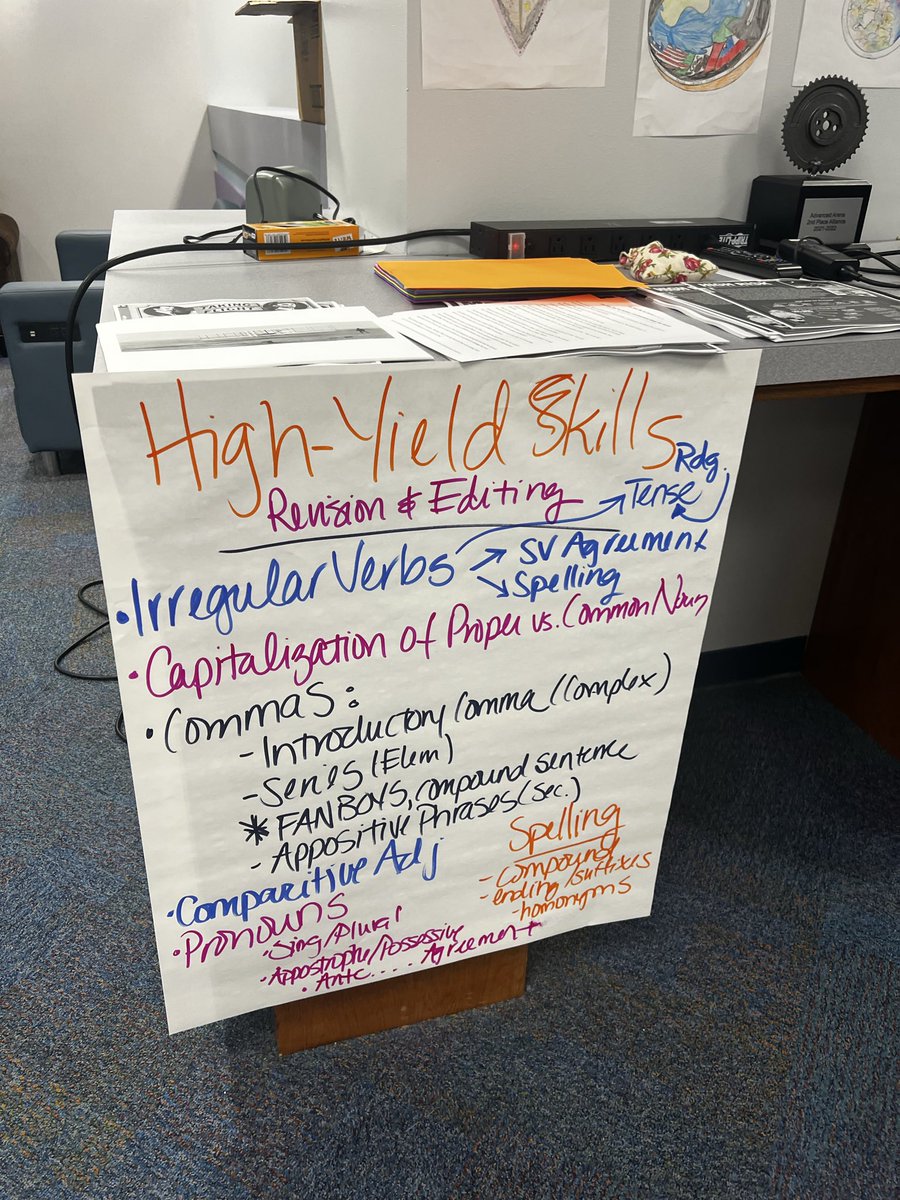 Advanced Arena
2nd Place Alliance
2021-2022
TRIPP·LITE
High-Yield Skills
Revision & Editing
Rdg.
Tense
• Irregular Verbs
SV Agreement
Spelling
• Capitalization of Proper vs. Common Nouns
• Commas:
- Introductory Comma (Complex)
- Series (Elem)
* FANBOYS, compound sentence
- Appositive Phrases (sec.)
• Comparitive Adj
Spelling
- compound
- ending/suffixes
- homonyms
• Pronouns
• Sing/Plural
- Appostrophe/Possessive
• Ante.... Agreement